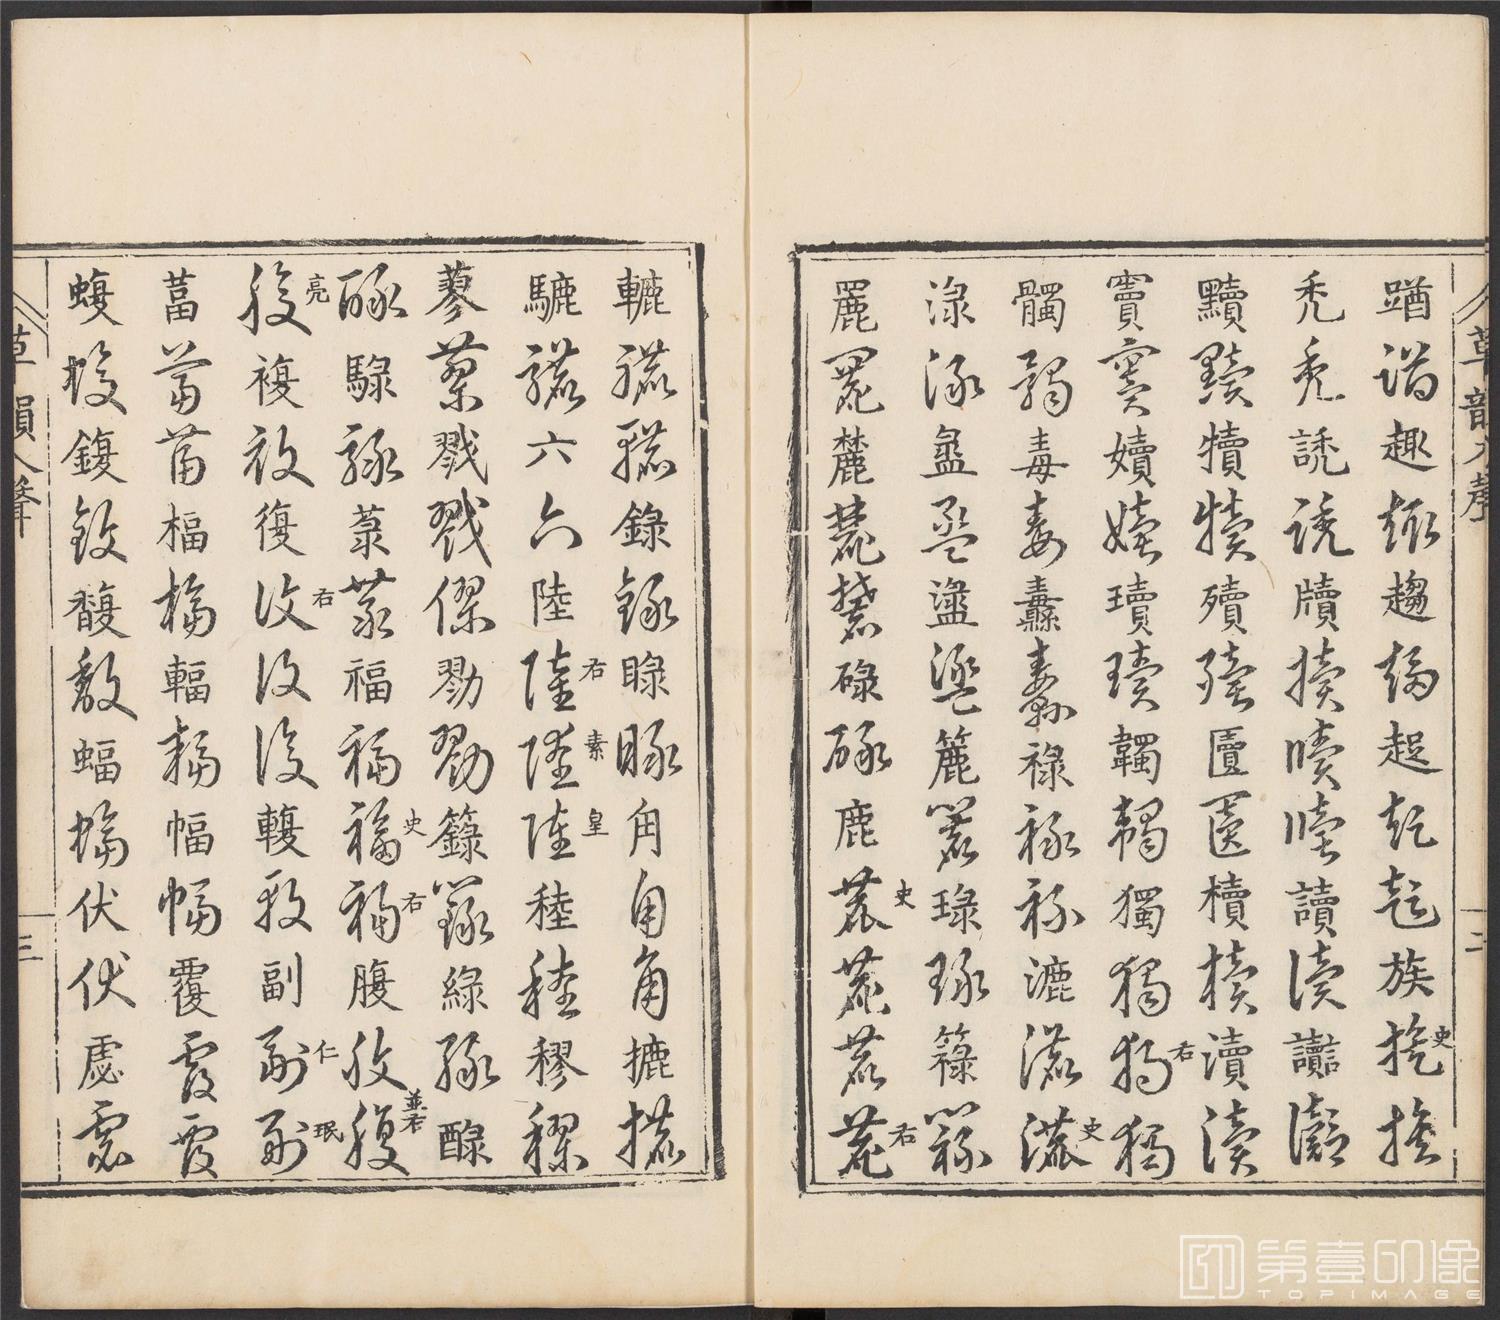 草韻入聲 二
趣趣趨趨族族史族
禿禿誘誘牘牘牘讀讀讟讟
黷黷犢犢殰殰匵匵櫝櫝瀆瀆
竇竇嬻嬻瓄瓄韣韣獨獨獨右獨
髑髑毒毒纛纛祿祿祿漉漉漉史
淥淥盝盝簏簏琭琭籙籙
麓麓碌碌鹿鹿史鹿鹿鹿右
轆轆轆錄錄睩睩角角角摝摝
騼騼六六陸陸右陸素陸皇稑稑穋穋
蓼蓼戮戮僇僇勠勠籙籙綠綠醁
醁騄騄菉菉福福福史福右腹腹腹並右
腹亮複複復復右復復輹輹副副仁副珉
葍葍葍楅楅輻輻幅幅覆覆覆
蝮蝮鍑鍑馥馥蝠蝠伏伏虙虙
草韻入聲 三
第壹印像
TOPIMAGE